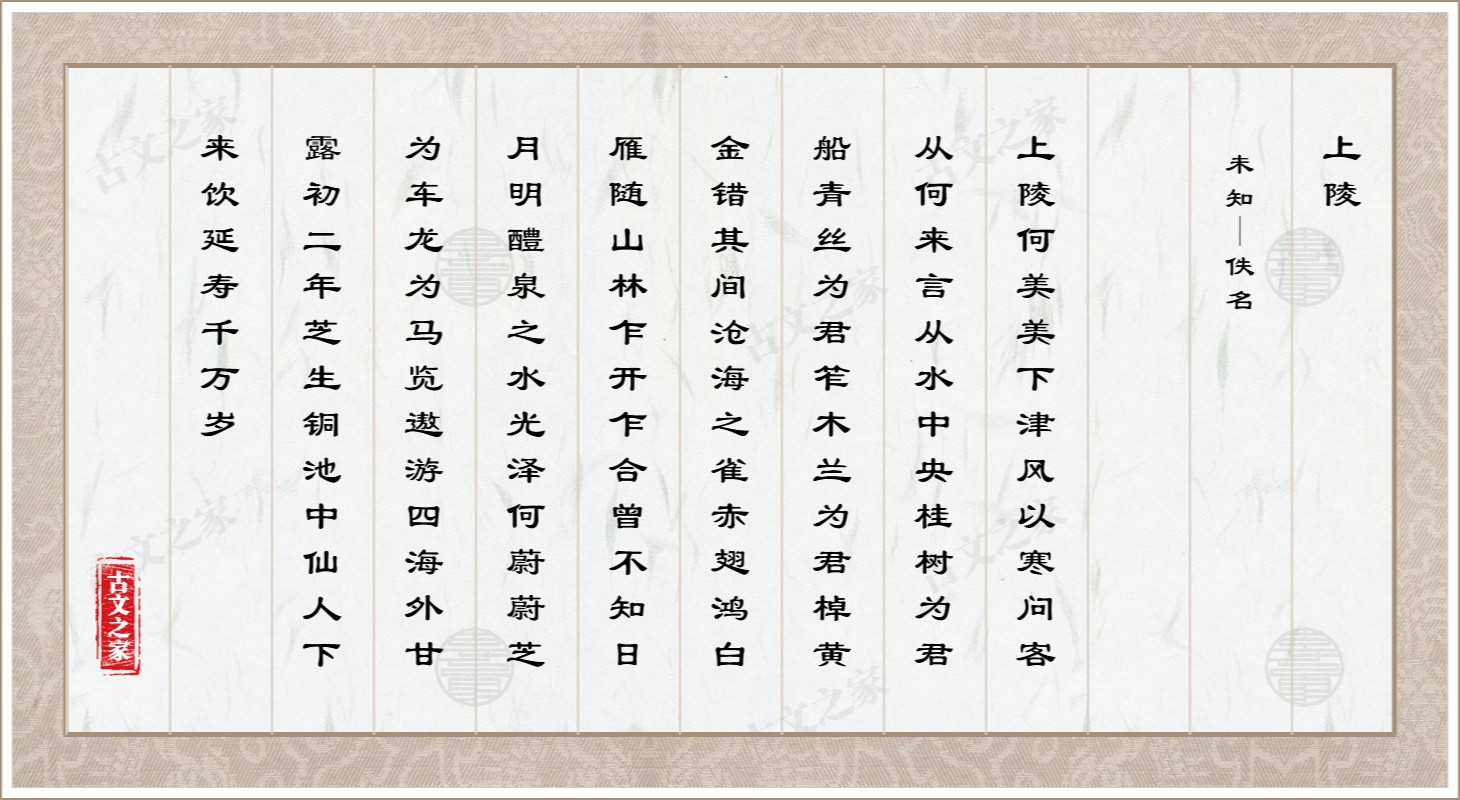 上陵
未知—佚名
上陵何美美下津风以寒问客
从何来言从水中央桂树为君
船青丝为君笮木兰为君棹黄
金错其间沧海之雀赤翅鸿白
雁随山林乍开乍合曾不知日
月明醴泉之水光泽何蔚蔚芝
为车龙为马览遨游四海外甘
露初二年芝生铜池中仙人下
来饮延寿千万岁
古文之家
古文之家
古文之家
古文之家
古文之家
古文之家
古文之家